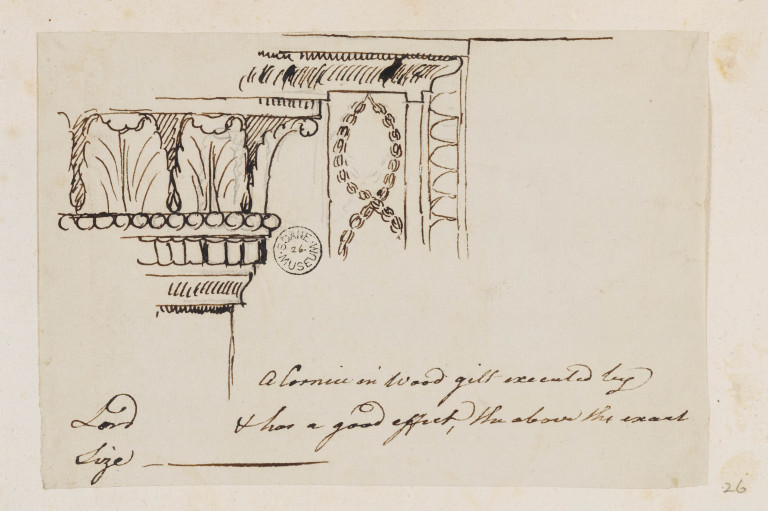 SOANE
26.
MUSEUM
A Cornice in Wood gilt executed by
Lord & has a good effect, the above the exact
Size
26